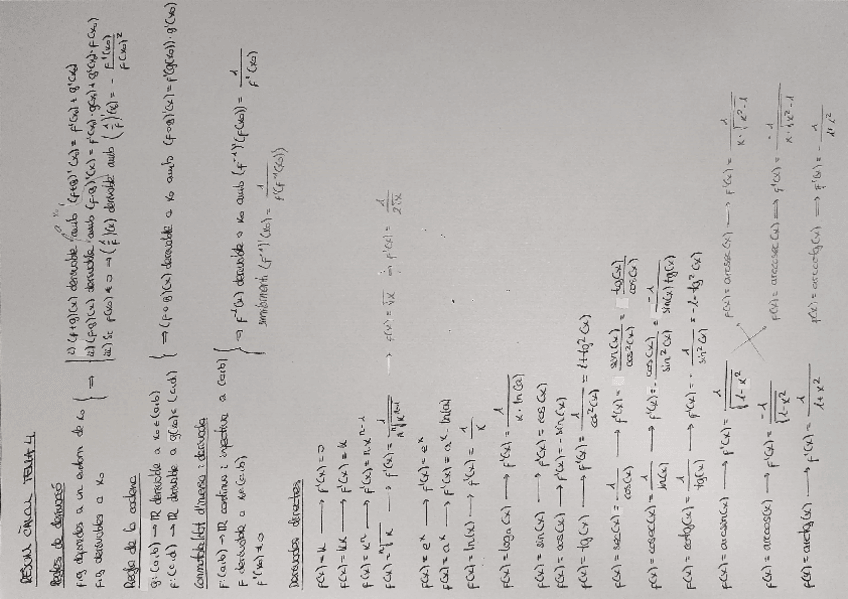 RESUM CÀLCUL TEMA 4.
Regles de derivació
f i g definides a un entorn de x₀
f i g derivables a x₀
} ⇒
i) (f+g)(x) derivable amb (f+g)'(x₀) = f'(x₀) + g'(x₀)
ii) (f·g)(x) derivable amb (f·g)'(x) = f'(x₀)·g(x₀) + g'(x₀)·f(x₀)
iii) Si f(x₀) ≠ 0 → (1/f)(x) derivable amb (1/f)'(x₀) = - f'(x₀)/f(x₀)²
Regla de la cadena
g: (a,b) → ℝ derivable a x₀ ∈ (a,b)
f: (c,d) → ℝ derivable a g(x₀) ∈ (c,d)
} ⇒ (f∘g)(x) derivable a x₀ amb (f∘g)'(x) = f'(g(x₀))·g'(x₀)
f: (a,b) → ℝ contínua i injectiva a (a,b)
f derivable a x₀ ∈ (a,b)
f'(x₀) ≠ 0
} ⇒ f⁻¹(x) derivable a x₀ amb (f⁻¹)'(f(x₀)) = 1/f'(x₀)
(f⁻¹)'(x₀) = 1/f'(f⁻¹(x₀))
Derivades directes
f(x) = k → f'(x) = 0
f(x) = kx → f'(x) = k
f(x) = xⁿ → f'(x) = n xⁿ⁻¹
f(x) = ⁿ√x → f'(x) = 1/(n ⁿ√xⁿ⁻¹) → f(x) = √x → f'(x) = 1/(2√x)
f(x) = eˣ → f'(x) = eˣ
f(x) = aˣ → f'(x) = aˣ·ln(a)
f(x) = ln(x) → f'(x) = 1/x
f(x) = logₐ(x) → f'(x) = 1/(x·ln(a))
f(x) = sin(x) → f'(x) = cos(x)
f(x) = cos(x) → f'(x) = -sin(x)
f(x) = tg(x) → f'(x) = 1/cos²(x) = 1+tg²(x)
f(x) = sec(x) = 1/cos(x) → f'(x) = sin(x)/cos²(x) = tg(x)/cos(x)
f(x) = cosec(x) = 1/sin(x) → f'(x) = -cos(x)/sin²(x) = -1/(sin(x)tg(x))
f(x) = cotg(x) = 1/tg(x) → f'(x) = -1/sin²(x) = -1-tg²(x)
f(x) = arcsin(x) → f'(x) = 1/√(1-x²) f(x) = arcsec(x) → f'(x) = 1/(x·√(x²-1))
f(x) = arccos(x) → f'(x) = -1/√(1-x²) f(x) = arccsec(x) → f'(x) = -1/(x·√(x²-1))
f(x) = arctg(x) → f'(x) = 1/(1+x²) f(x) = arccotg(x) → f'(x) = -1/(1+x²)